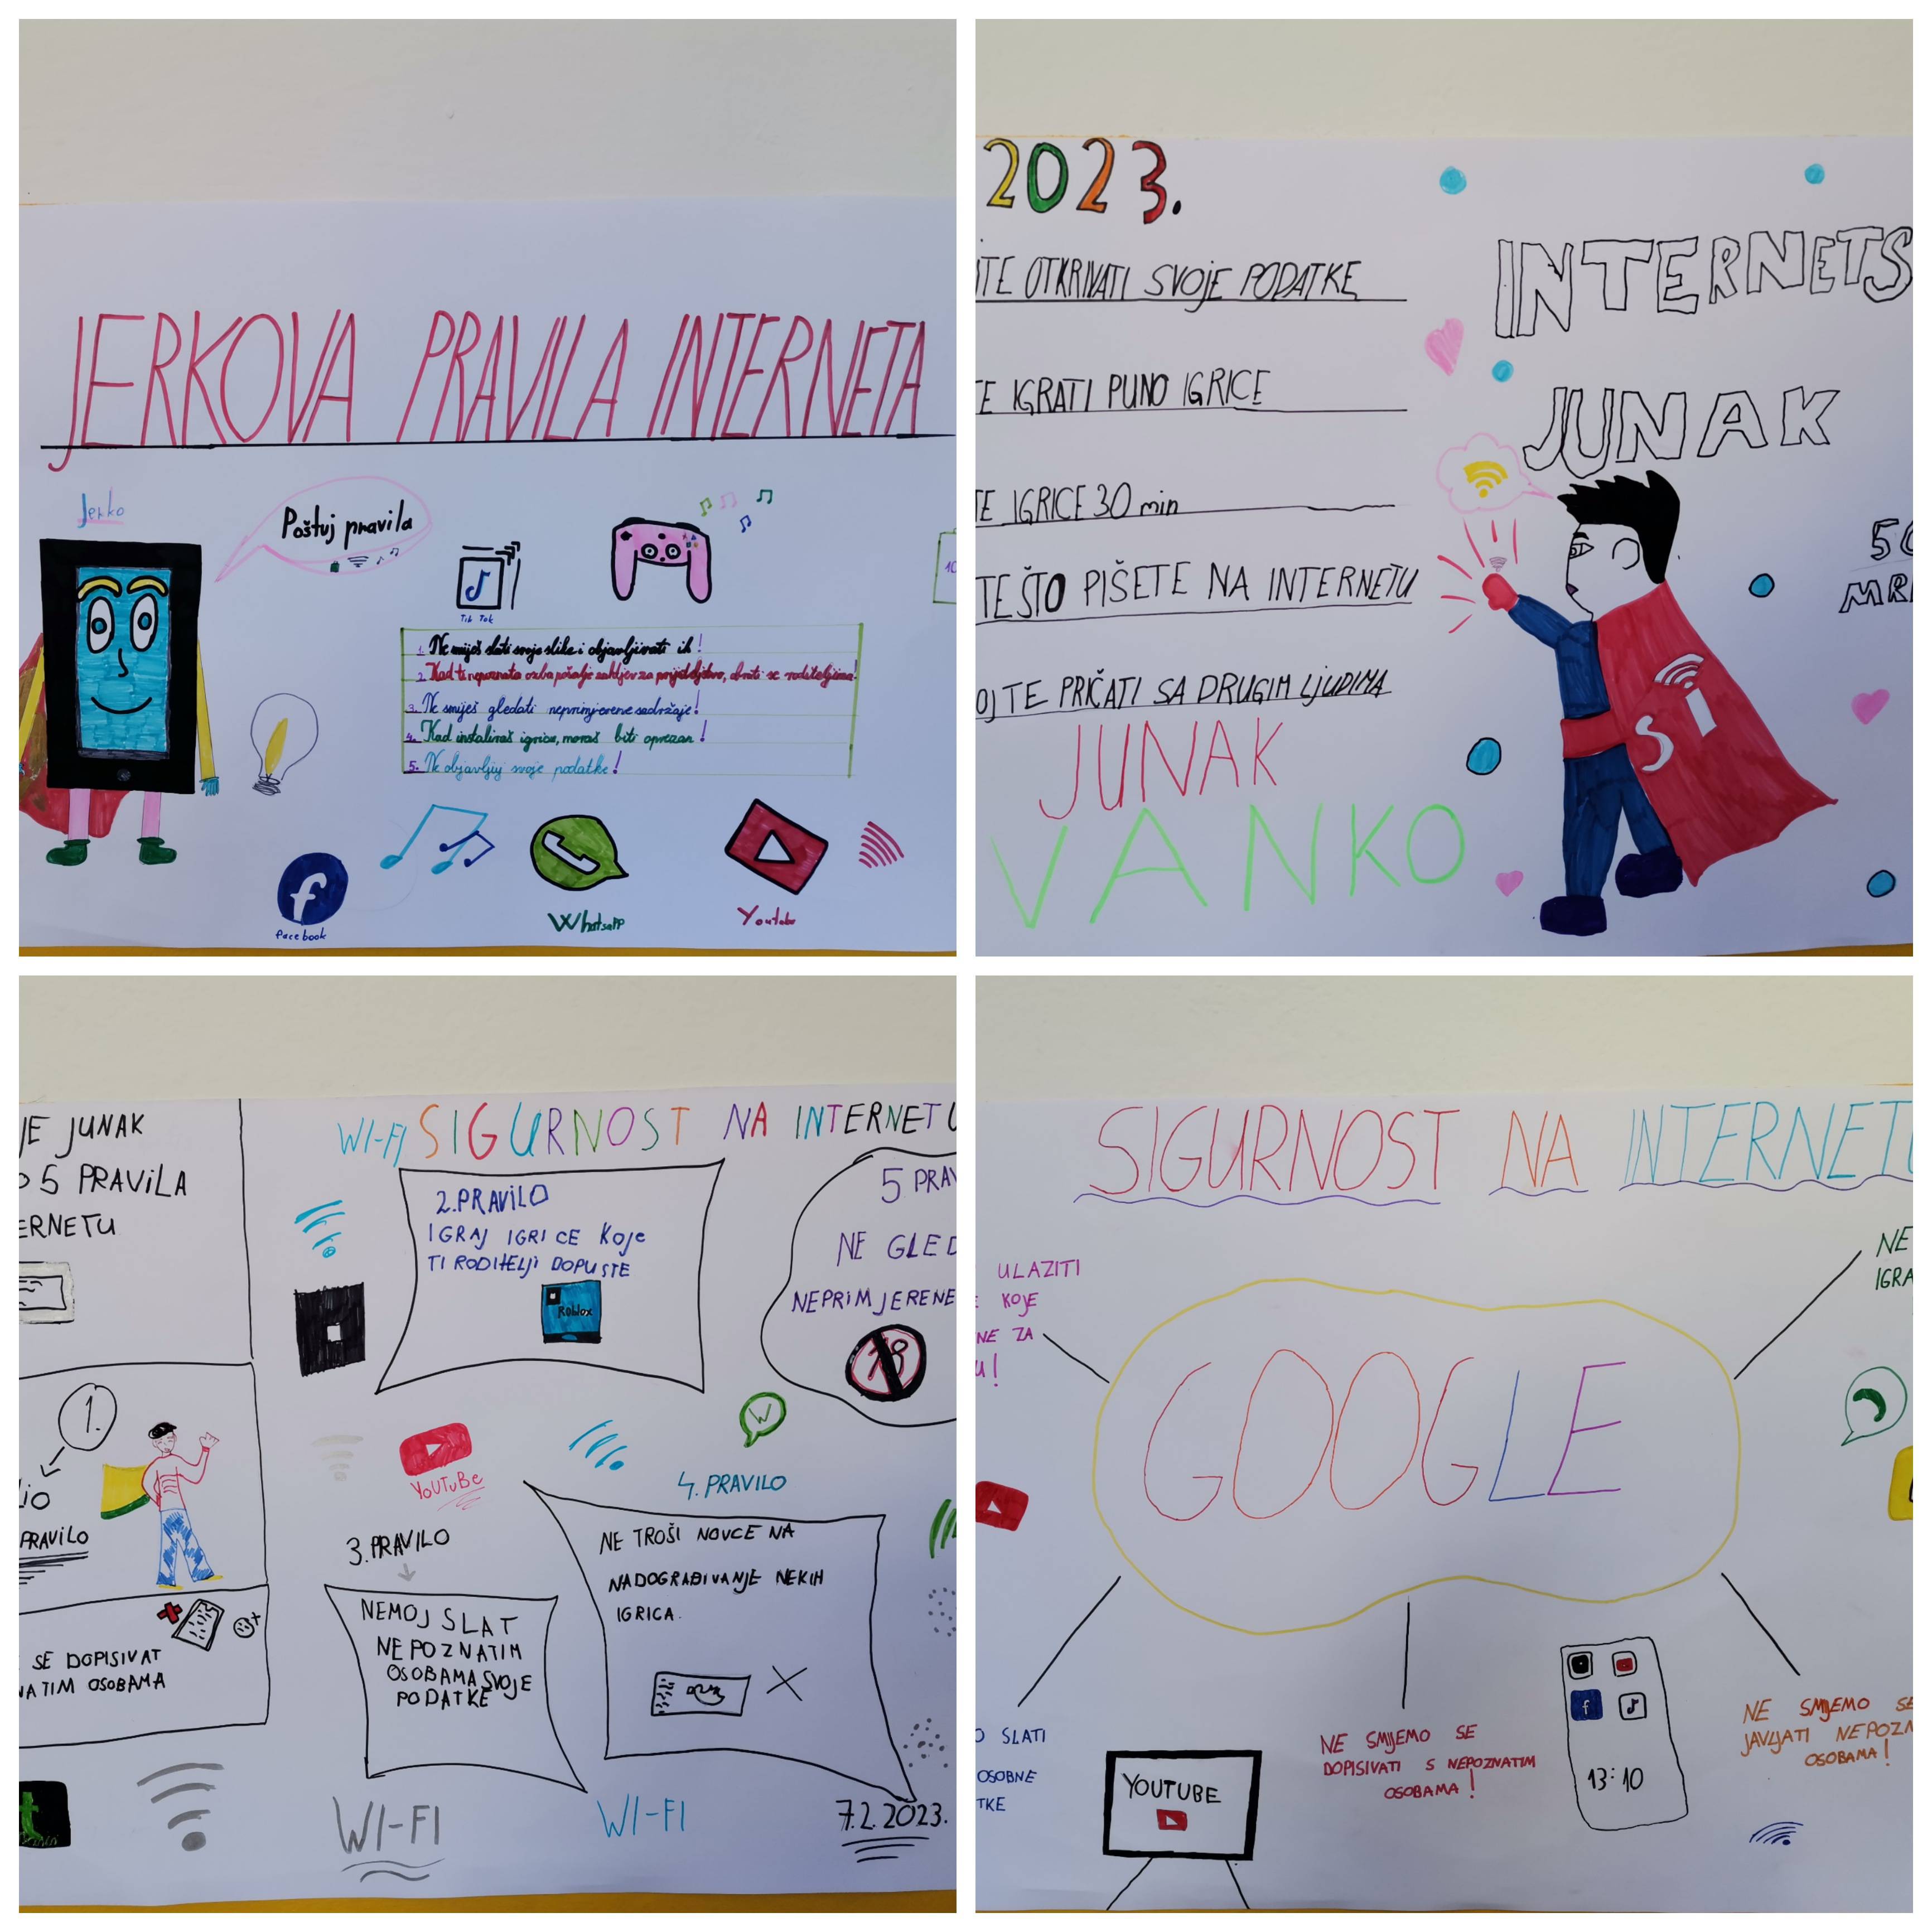 JERKOVA PRAVILA INTERNETA
Jerko
Poštuj pravila
Tik Tok
1. Ne smiješ slati svoje slike i objavljivati ih!
2. Kad ti nepoznata osoba pošalje zahtjev za prijateljstvo, obrati se roditeljima!
3. Ne smiješ gledati neprimjerene sadržaje!
4. Kad instaliraš igrice, moraš biti oprezan!
5. Ne objavljuj svoje podatke!
facebook
WhatsaPP
Youtube
2023.
ITE OTKRIVATI SVOJE PODATKE
TE IGRATI PUNO IGRICE
TE IGRICE 30 min
TE ŠTO PIŠETE NA INTERNETU
OJTE PRIČATI SA DRUGIM LJUDIMA
JUNAK
VANKO
INTERNETS
JUNAK
SI
MR
JE JUNAK
5 PRAVILA
ERNETU
1.
IO
PRAVILO
SE DOPISIVAT
NATIM OSOBAMA
t
WI-FI SIGURNOST NA INTERNETU
2. PRAVILO
IGRAJ IGRICE KOJE
TI RODITELJI DOPUSTE
Roblox
5 PRAV
NE GLED
NEPRIMJERENE
18
W
YOUTUBE
3. PRAVILO
NEMOJ SLAT
NEPOZNATIM
OSOBAMA SVOJE
PODATKE
4. PRAVILO
NE TROŠI NOVCE NA
NADOGRAĐIVANJE NEKIH
IGRICA.
WI-FI
WI-FI
7.2.2023.
SIGURNOST NA INTERNETU
ULAZITI
KOJE
NE ZA
U!
NE
IGRA
GOOGLE
SLATI
OSOBNE
TKE
YOUTUBE
NE SMIJEMO SE
DOPISIVATI S NEPOZNATIM
OSOBAMA!
f
13:10
NE SMIJEMO SE
JAVLJATI NEPOZN
OSOBAMA!